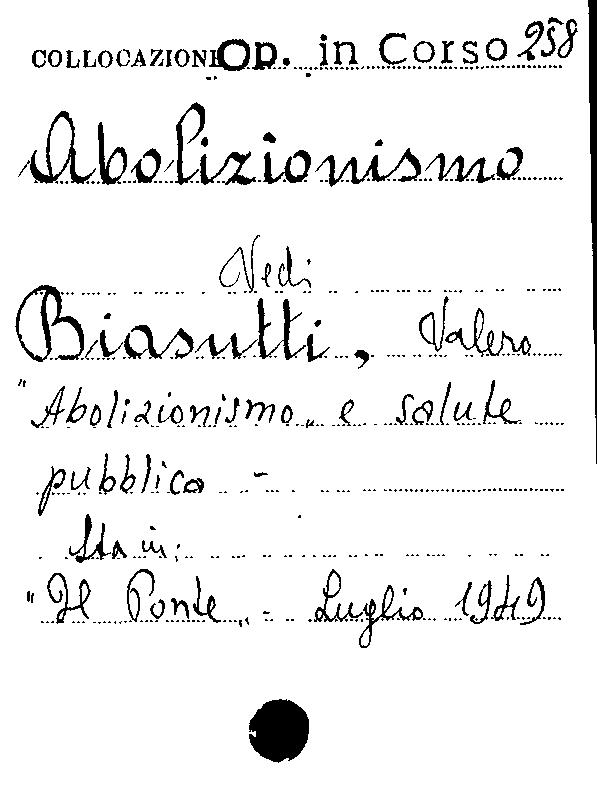 COLLOCAZIONE OP. in Corso 258
Abolizionismo
Vedi
Biasutti, Valero
"Abolizionismo„ e salute
pubblica -
Sta in:
"Il Ponte„ - Luglio 1949